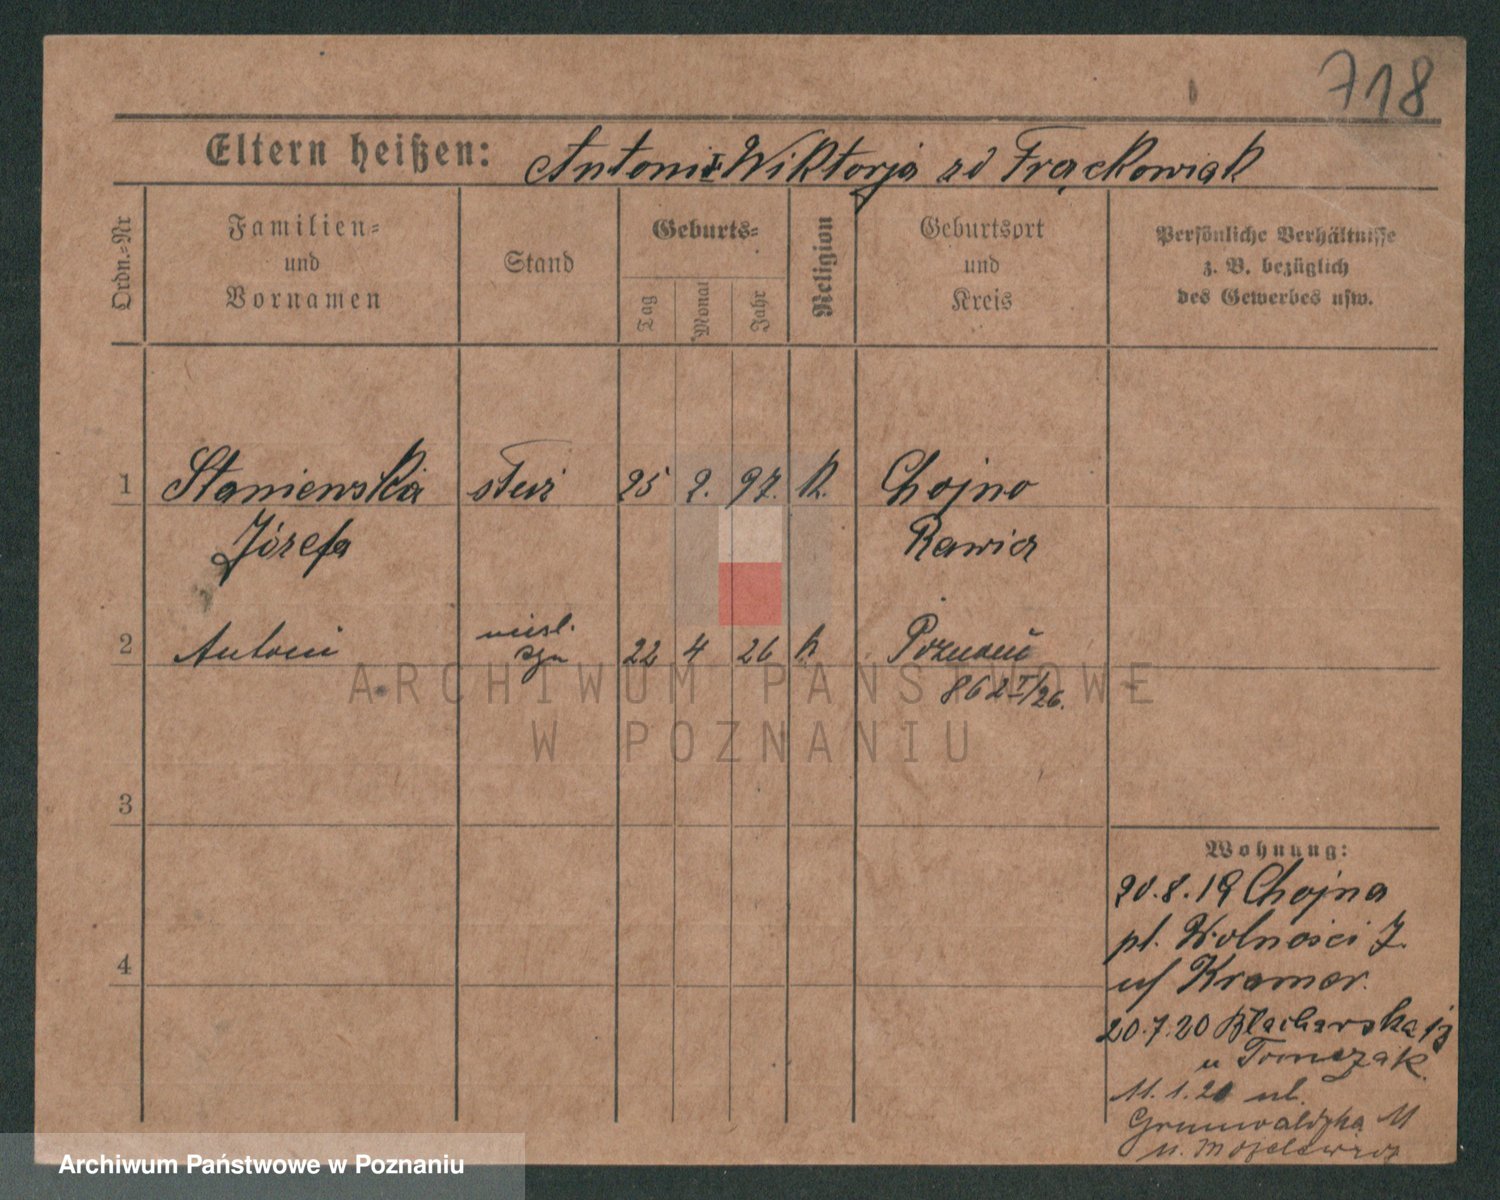 718
Eltern heißen: Antoni Wiktorja zd Frąckowiak
Ordn.-Nr
Familien- und Vornamen
Stand
Geburts-
Tag
Monat
Jahr
Religion
Geburtsort und Kreis
Persönliche Verhältnisse z. B. bezüglich des Gewerbes usw.
1 Staniewska 25 2. 97. k. Chojno
Józefa Rawicz
2 Antoni 22 4 26 k Poznań
862 /26.
3
4
Wohnung:
20.8.19 Chojna
pl. Wolności 7.
Kramer.
20.7.20 Blacharska
u Tomczak
11.1. ul.
Grunwaldzka 11
u.
ARCHIWUM PAŃSTWOWE
W POZNANIU
Archiwum Państwowe w Poznaniu